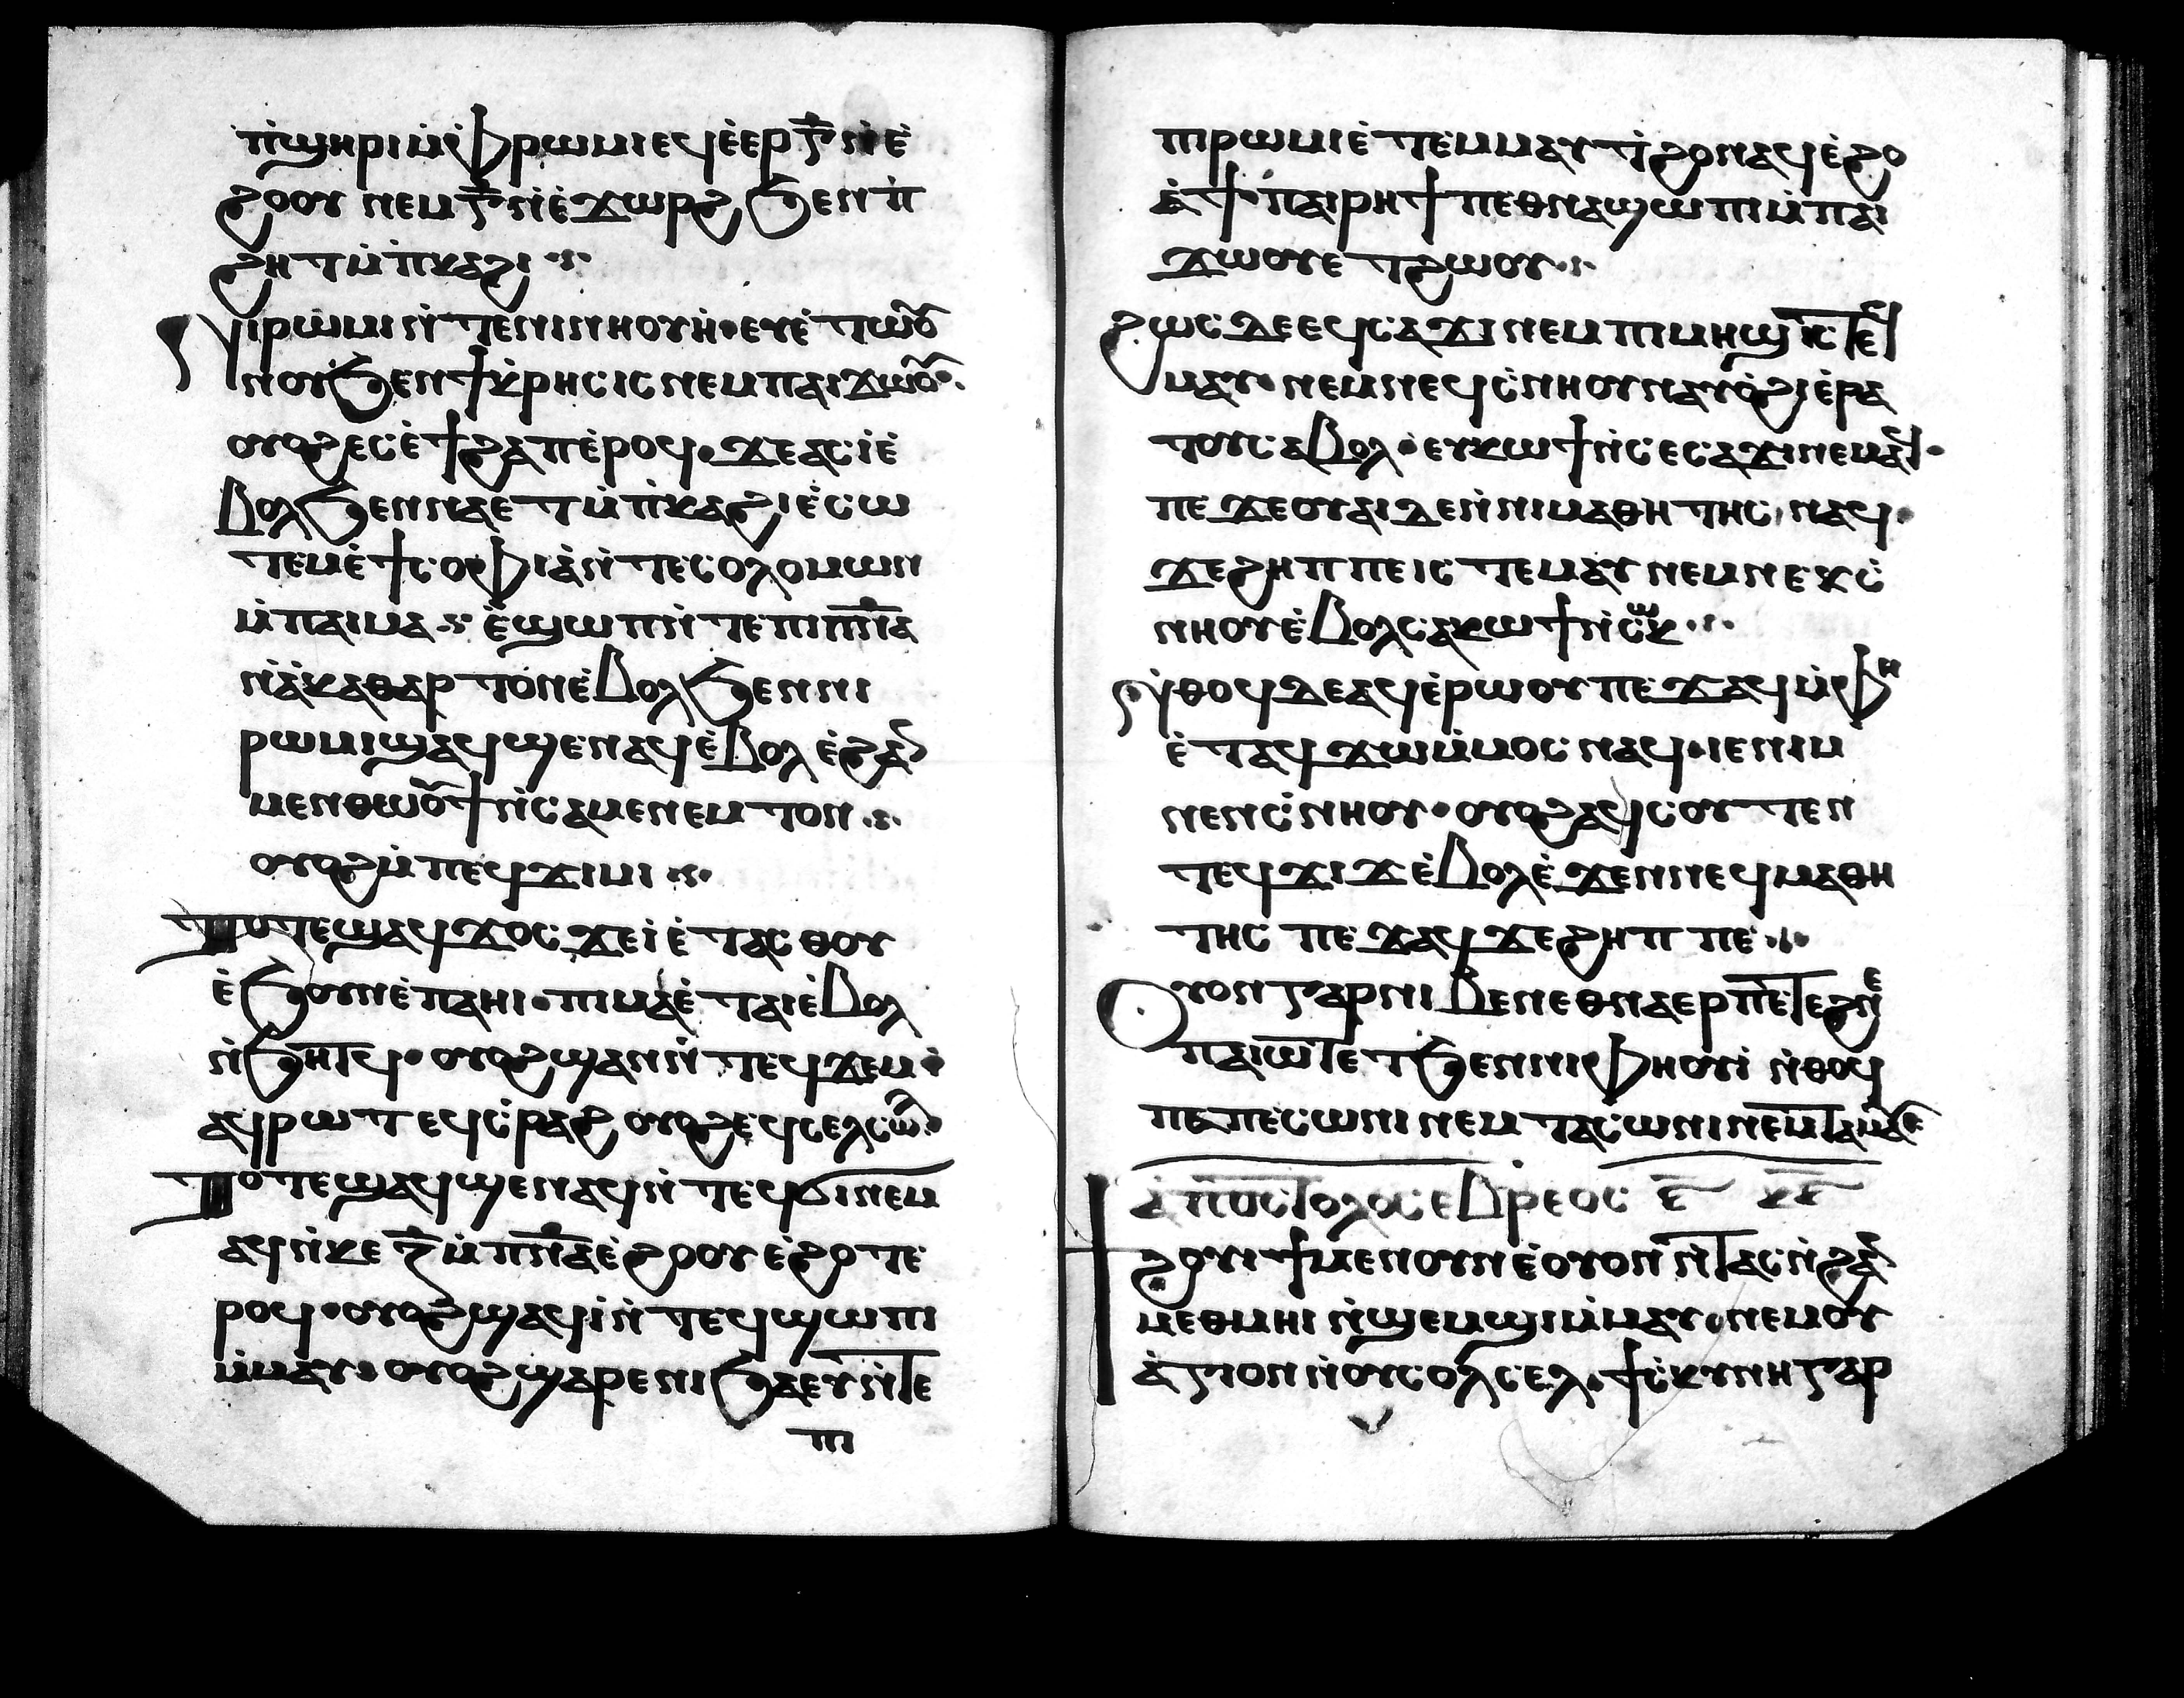 ⲡ̇ϣⲏⲣⲓ ⲙ̇ⲫⲣⲱⲙⲓ ⲉϥⲉ̇ⲉⲣ ⲅ̅ ⲛ̇ⲉ̇
ϩⲟⲟⲩ ⲛⲉⲙ ⲅ̅ ⲛ̇ⲉ̇ϫⲱⲣϩ ϧⲉⲛ ⲡ̇
ϩⲏⲧ ⲙ̇ⲡ̇ⲕⲁϩⲓ
Ⲛⲓⲣⲱⲙⲓ ⲛ̇ⲧⲉ ⲛⲓⲛⲏⲟⲩⲏ̇· ⲉⲩⲉ̇ⲧⲱⲟ̅
ⲛⲟⲩ ϧⲉⲛ ϯⲕ̇ⲣⲏⲥⲓⲥ ⲛⲉⲙ ⲡⲁⲓϫⲱⲟ̅·
ⲟⲩⲟϩ ⲉⲥⲉ̇ϯϩⲁⲡ ⲉ̇ⲣⲟϥ· ϫⲉ ⲁⲥⲓ̇ ⲉ̇
ⲃⲟⲗ ϧⲉⲛ ⲛⲁⲉⲧ ⲙ̇ⲡ̇ⲕⲁϩⲓ ⲉ̇ⲥⲱ
ⲧⲉⲙ ⲉ̇ϯⲥⲟⲫⲓⲁ̇ ⲛ̇ⲧⲉ ⲥⲟⲗⲟⲙⲱⲛ
ⲙ̇ⲡⲁⲓⲙⲁ ⲉ̇ϣⲱⲡ ⲛ̇ⲧⲉ ⲡⲓⲡ̅ⲛ̅ⲁ
ⲛ̇ⲁ̇ⲕⲁⲑⲁⲣⲧⲟⲛ ⲉ̇ⲃⲟⲗ ϧⲉⲛ ⲛⲓ
ⲣⲱⲙⲓ ϣⲁϥϣⲉⲛⲁϥ ⲉ̇ⲃⲟⲗ ⲉ̇ϩⲁⲛ
ⲙⲉⲛⲑⲱⲟ̅ϯ ⲛ̇ⲥⲁ ⲙⲉⲛⲉⲙⲧⲟⲛ
ⲟⲩⲟϩ ⲙ̇ⲡⲉϥϫⲓⲙⲓ
Ⲧⲟⲧⲉ ϣⲁϥϫⲟⲥ ϫⲉ ⲉⲓⲉ̇ⲧⲁⲥⲑⲟⲩ
ⲉ̇ϧⲟⲩⲛ ⲉ̇ⲡⲁⲏⲓ· ⲡⲓⲙⲁ ⲉ̇ⲧⲁⲓⲉ̇ⲃⲟⲗ
ⲛ̇ϧⲏⲧϥ· ⲟⲩⲟϩ ϣⲁⲛ ⲛ̇ⲧⲉϥϫⲉⲙ·
ⲁϥⲣⲱⲧ ⲉϥⲥ̇ⲣⲁϩ ⲟⲩⲟϩ ⲉϥⲥⲉⲗⲥⲱ̅
Ⲧⲟⲧⲉ ϣⲁϥϣⲉⲛⲁϥ ⲛ̇ⲧⲉϥϭⲓ ⲛⲉⲙ
ⲁϥ ⲛ̇ⲕⲉ ⲍ̅ ⲙ̇ⲡ̅ⲛ̅ⲁ ⲉ̇ϩⲟⲟⲩ ⲉ̇ϩⲟⲧⲉ
ⲣⲟϥ· ⲟⲩⲟϩ ϣⲁϥⲓ̇ ⲛ̇ⲧⲉϥϣⲱⲡⲓ
ⲙ̇ⲙⲁⲩ· ⲟⲩⲟϩ ϣⲁⲣⲉ ⲛⲓϧⲁⲉⲩ ⲛ̇ⲧⲉ
ⲡⲓ
ⲡⲓⲣⲱⲙⲓ ⲉ̇ⲧⲉⲙⲙⲁⲩ ⲧ̇ϩⲟ ⲛⲁϥ ⲉ̇ϩⲟ
ⲉ̇ϯ· ⲡⲁⲓⲣⲏϯ ⲡⲉⲑⲛⲁϣⲱⲡⲓ ⲙ̇ⲡⲁⲓ
ϫⲱⲟⲩ ⲉⲧϩⲱⲟⲩ
ϩⲱⲥ ⲇⲉ ⲉϥⲥⲁϫⲓ ⲛⲉⲙ ⲡⲓⲙⲏϣ ⲓⲥ ⲧⲉϥ
ⲙⲁⲩ· ⲛⲉⲙ ⲛⲉϥⲥ̇ⲛⲏⲟⲩ ⲛⲁⲩⲟ̇ϩⲓ ⲉ̇ⲣⲁ
ⲧⲟⲩ ⲥⲁⲃⲟⲗ· ⲉⲩⲕⲱϯ ⲛ̇ⲥⲉⲥⲁϫⲓ ⲛⲉⲙⲁϥ·
ⲡⲉϫⲉ ⲟⲩⲁⲓ ⲇⲉ ⲛ̇ⲛⲓⲙⲁⲑⲏⲧⲏⲥ ⲛⲁϥ·
ϫⲉ ϩⲏⲡⲡⲉ ⲓⲥ ⲧⲉⲙⲁⲩ ⲛⲉⲙ ⲛⲉⲕⲥ̇
ⲛⲏⲟⲩ ⲉ̇ⲃⲟⲗ ⲥⲁⲕⲱϯ ⲛ̇ⲥⲱⲕ
ⲛ̇ⲑⲟϥ ⲇⲉ ⲁϥⲉ̇ⲣⲱⲟⲩ ⲡⲉϫⲁϥ ⲙ̇ⲫⲏ
ⲉ̇ⲧⲁϥϫⲱ ⲙ̇ⲙⲟⲥ ⲛⲁϥ· ⲓⲉ ⲛⲓⲙ
ⲛⲉ ⲛⲥ̇ⲛⲏⲟⲩ· ⲟⲩⲟϩ ⲁϥⲥⲟⲩⲧⲉⲛ
ⲧⲉϥϫⲓϫ ⲉ̇ⲃⲟⲗ ⲉ̇ϫⲉⲛ ⲛⲉϥⲙⲁⲑⲏ
ⲧⲏⲥ ⲡⲉϫⲁϥ ϫⲉ ϩⲏⲡⲡⲉ
Ⲟⲩⲟⲛ ⲅⲁⲣ ⲛⲓⲃⲉⲛ ⲉⲑⲛⲁⲉⲣ ⲡⲉⲧⲉϩⲛⲉ̇
ⲡⲁⲓⲱⲧ ⲉⲧϧⲉⲛ ⲛⲓⲫⲏⲟⲩⲓ̇ ⲛ̇ⲑⲟϥ
ⲡⲉ ⲡⲉⲥⲱⲛⲓ ⲛⲉⲙ ⲧⲁⲥⲱⲛⲓ ⲛⲉⲙ ⲧⲁⲙⲁⲩ
ⲁ̇ⲡⲟⲥⲧⲟⲗⲟⲥ ⲉⲃⲣⲉⲟⲥ
ϯϩⲟⲩⲓϯ ⲙⲉⲛ ⲟⲩⲛ ⲉ̇ⲟⲩⲟⲛ ⲛ̇ⲧⲁⲥ ⲛ̇ϩⲁⲛ
ⲙⲉⲑⲙⲏⲓ ⲛ̇ϣⲉⲙϣⲓ ⲙ̇ⲙⲁⲩ· ⲛⲉⲙ ⲟⲩ
ⲁ̇ⲅⲓⲟⲛ ⲛ̇ⲟⲩⲥⲟⲗⲥⲉⲗ· ϯⲥ̇ⲕⲩⲛⲏ ⲅⲁⲣ